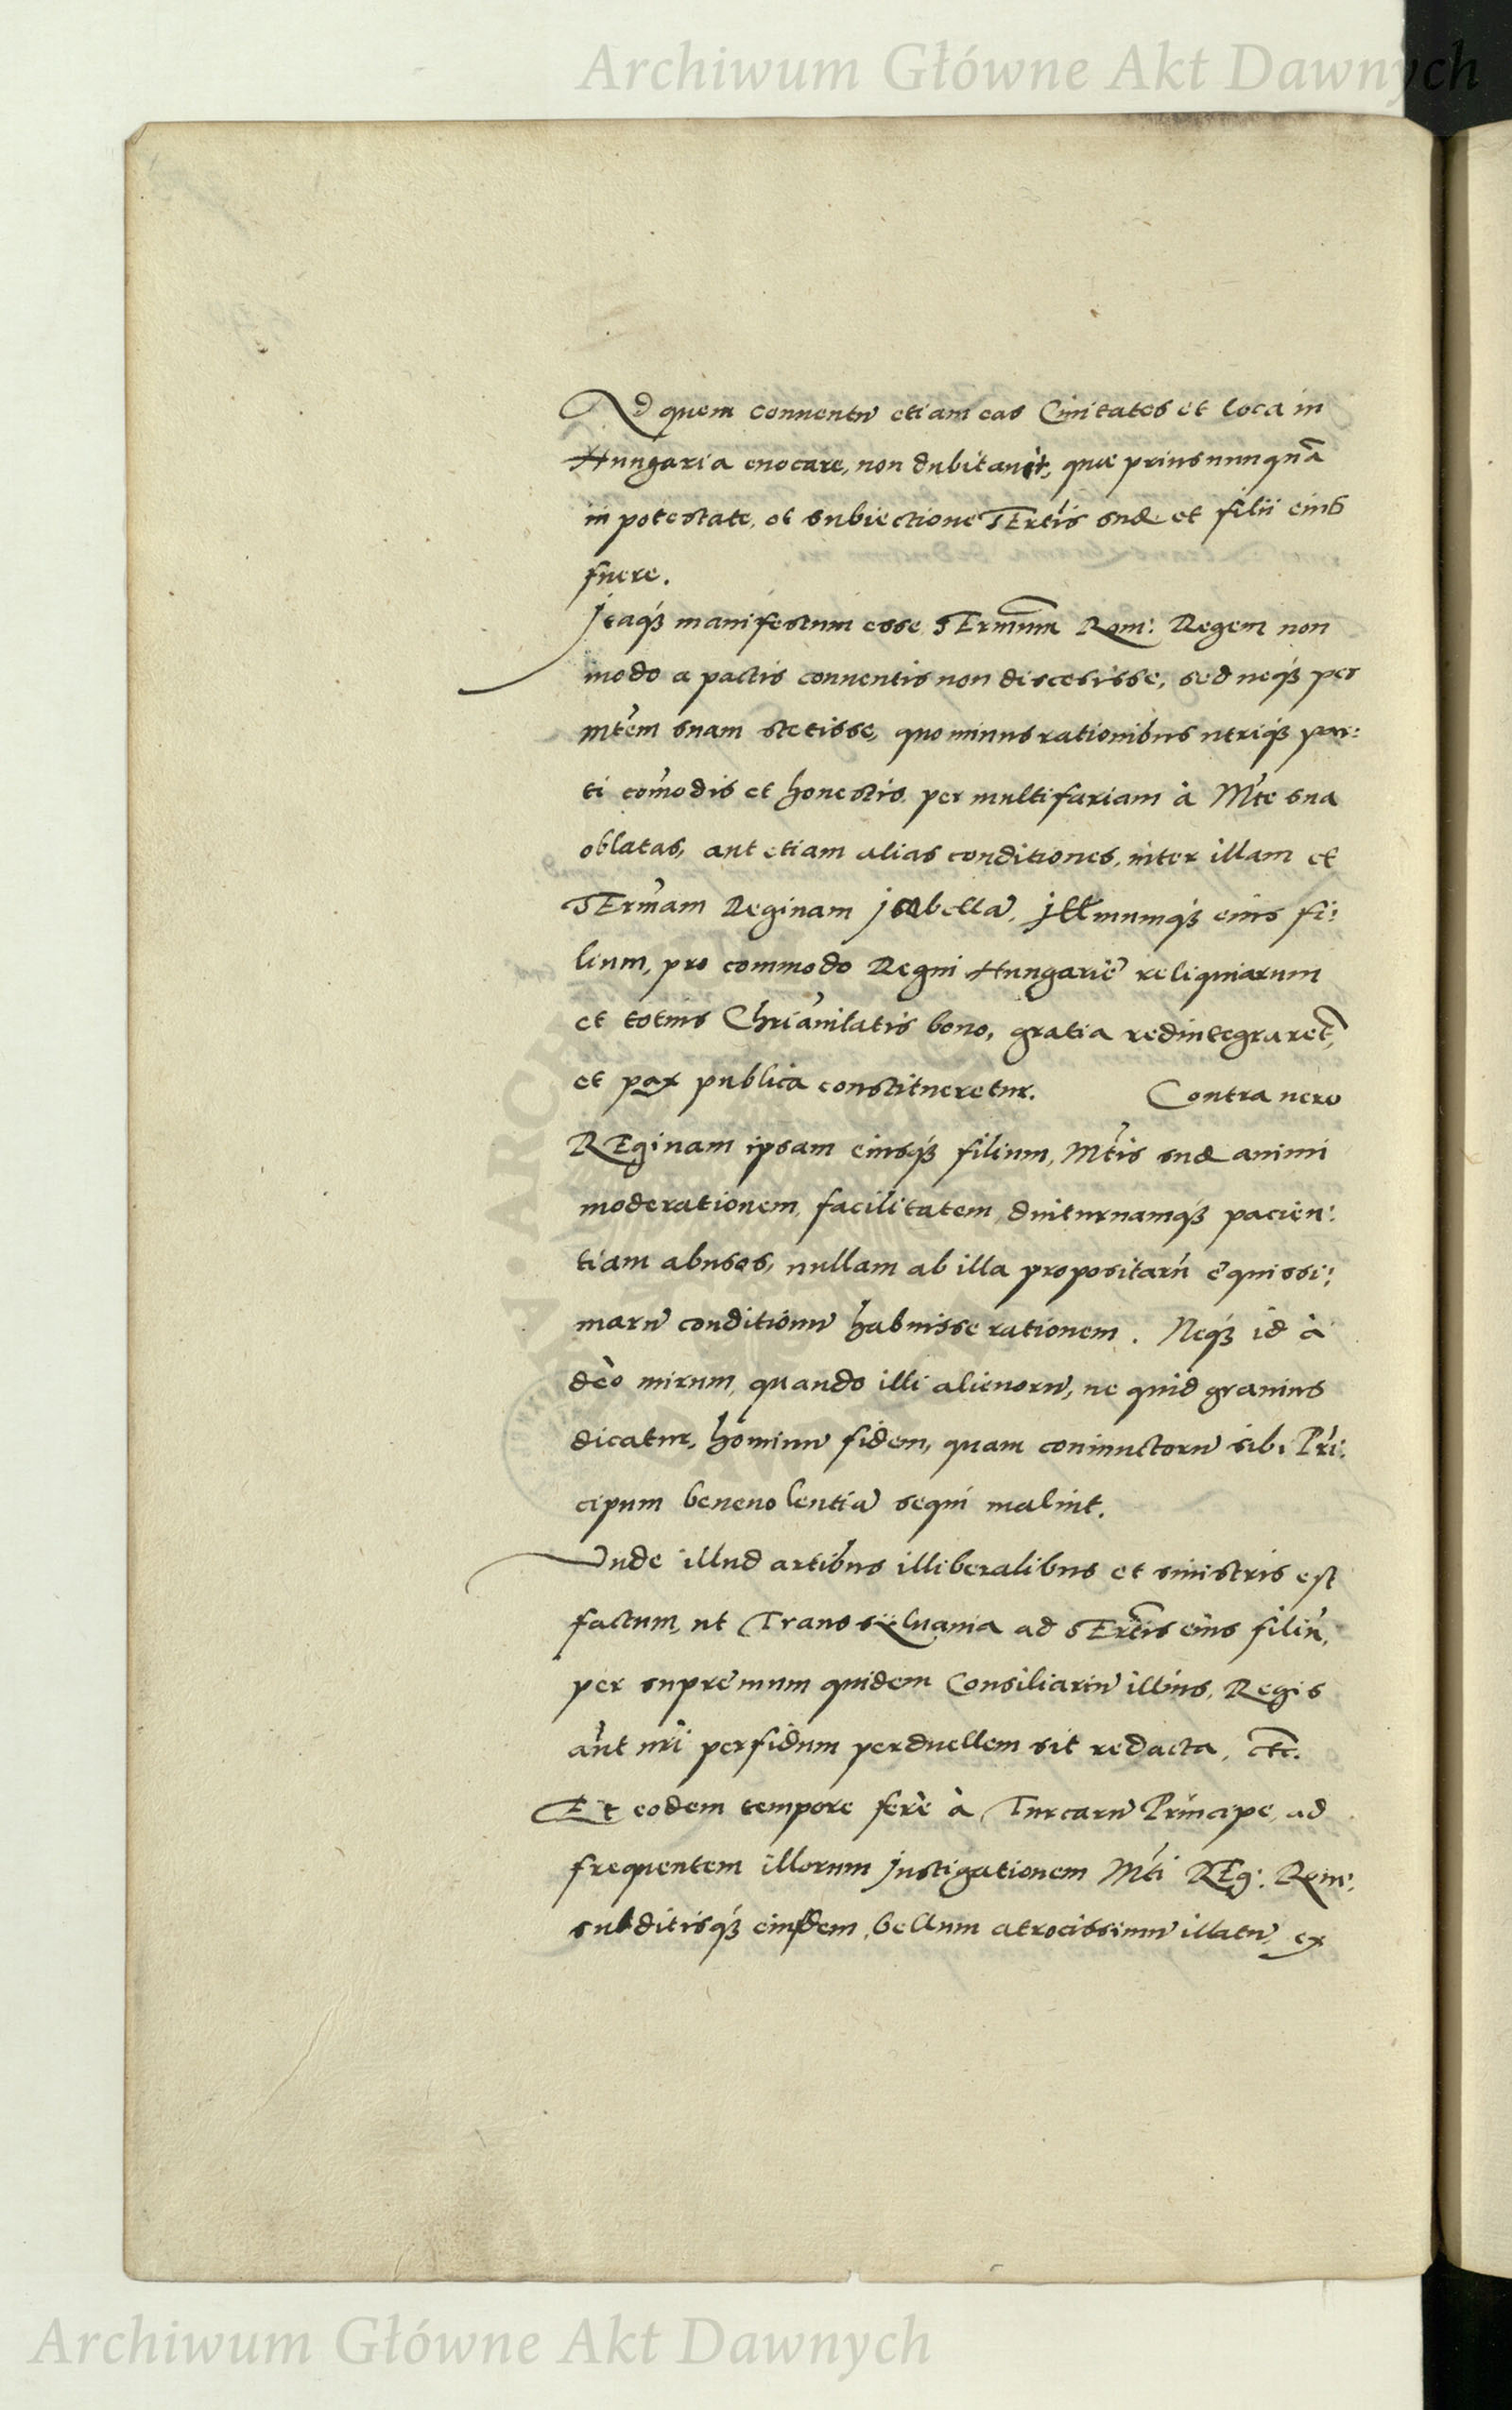 Archiwum Główne Akt Dawnych
Ad quem conuentũ etiam eas Ciuitates et loca in
Hungaria euocare, non dubitauit, quæ prius nunquã
in potestate, et subiectione SErtis suæ et filii eius
fuere.
Itaq́ȝ manifestum esse SErmum Rom: Regem non
modo a pactis conuentis non discessisse, sed neq́ȝ per
mtem suam stetisse, quo minus rationibus utriq́ȝ par:
ti com̃odis et honestis per multifariam à Mte sua
oblatas, aut etiam alias conditiones, inter illam et
SErmam Reginam Isabellã, Illmumq́ȝ eius fi:
lium, pro commodo Regni Hungariȩ reliquiarum
et totius Chrianitatis bono, gratia redintegraret̃,
et pax publica constitueretur. Contra uero
REginam ipsam eiusq́ȝ filium, Mtis suæ animi
moderationem, facilitatem, diuturnamq́ȝ pacien:
tiam abusos, nullam ab illa propositarũ ȩquissi:
marũ conditionũ habuisse rationem. Neq́ȝ id à
dèo mirum, quando illi alienorũ, ne quid grauius
dicatur, hominũ fidem, quam coniunctorũ sibi Pri:
cipum beneuolentiã sequi malint.
Unde illud artibus illiberalibus et sinistris est
factum, ut Transsyluania ad SErtis eius filiũ,
per supremum quidem Consiliariũ illius, Regis
aũt nr̃i perfidum perduellem sit redacta, etc.
Et eodem tempore ferè à Turcarũ Principe, ad
frequentem illorum Instigationem Mti REg: Rom:
subditisq́ȝ eiusdem, bellum atrocissimũ illatũ, ex
Archiwum Główne Akt Dawnych